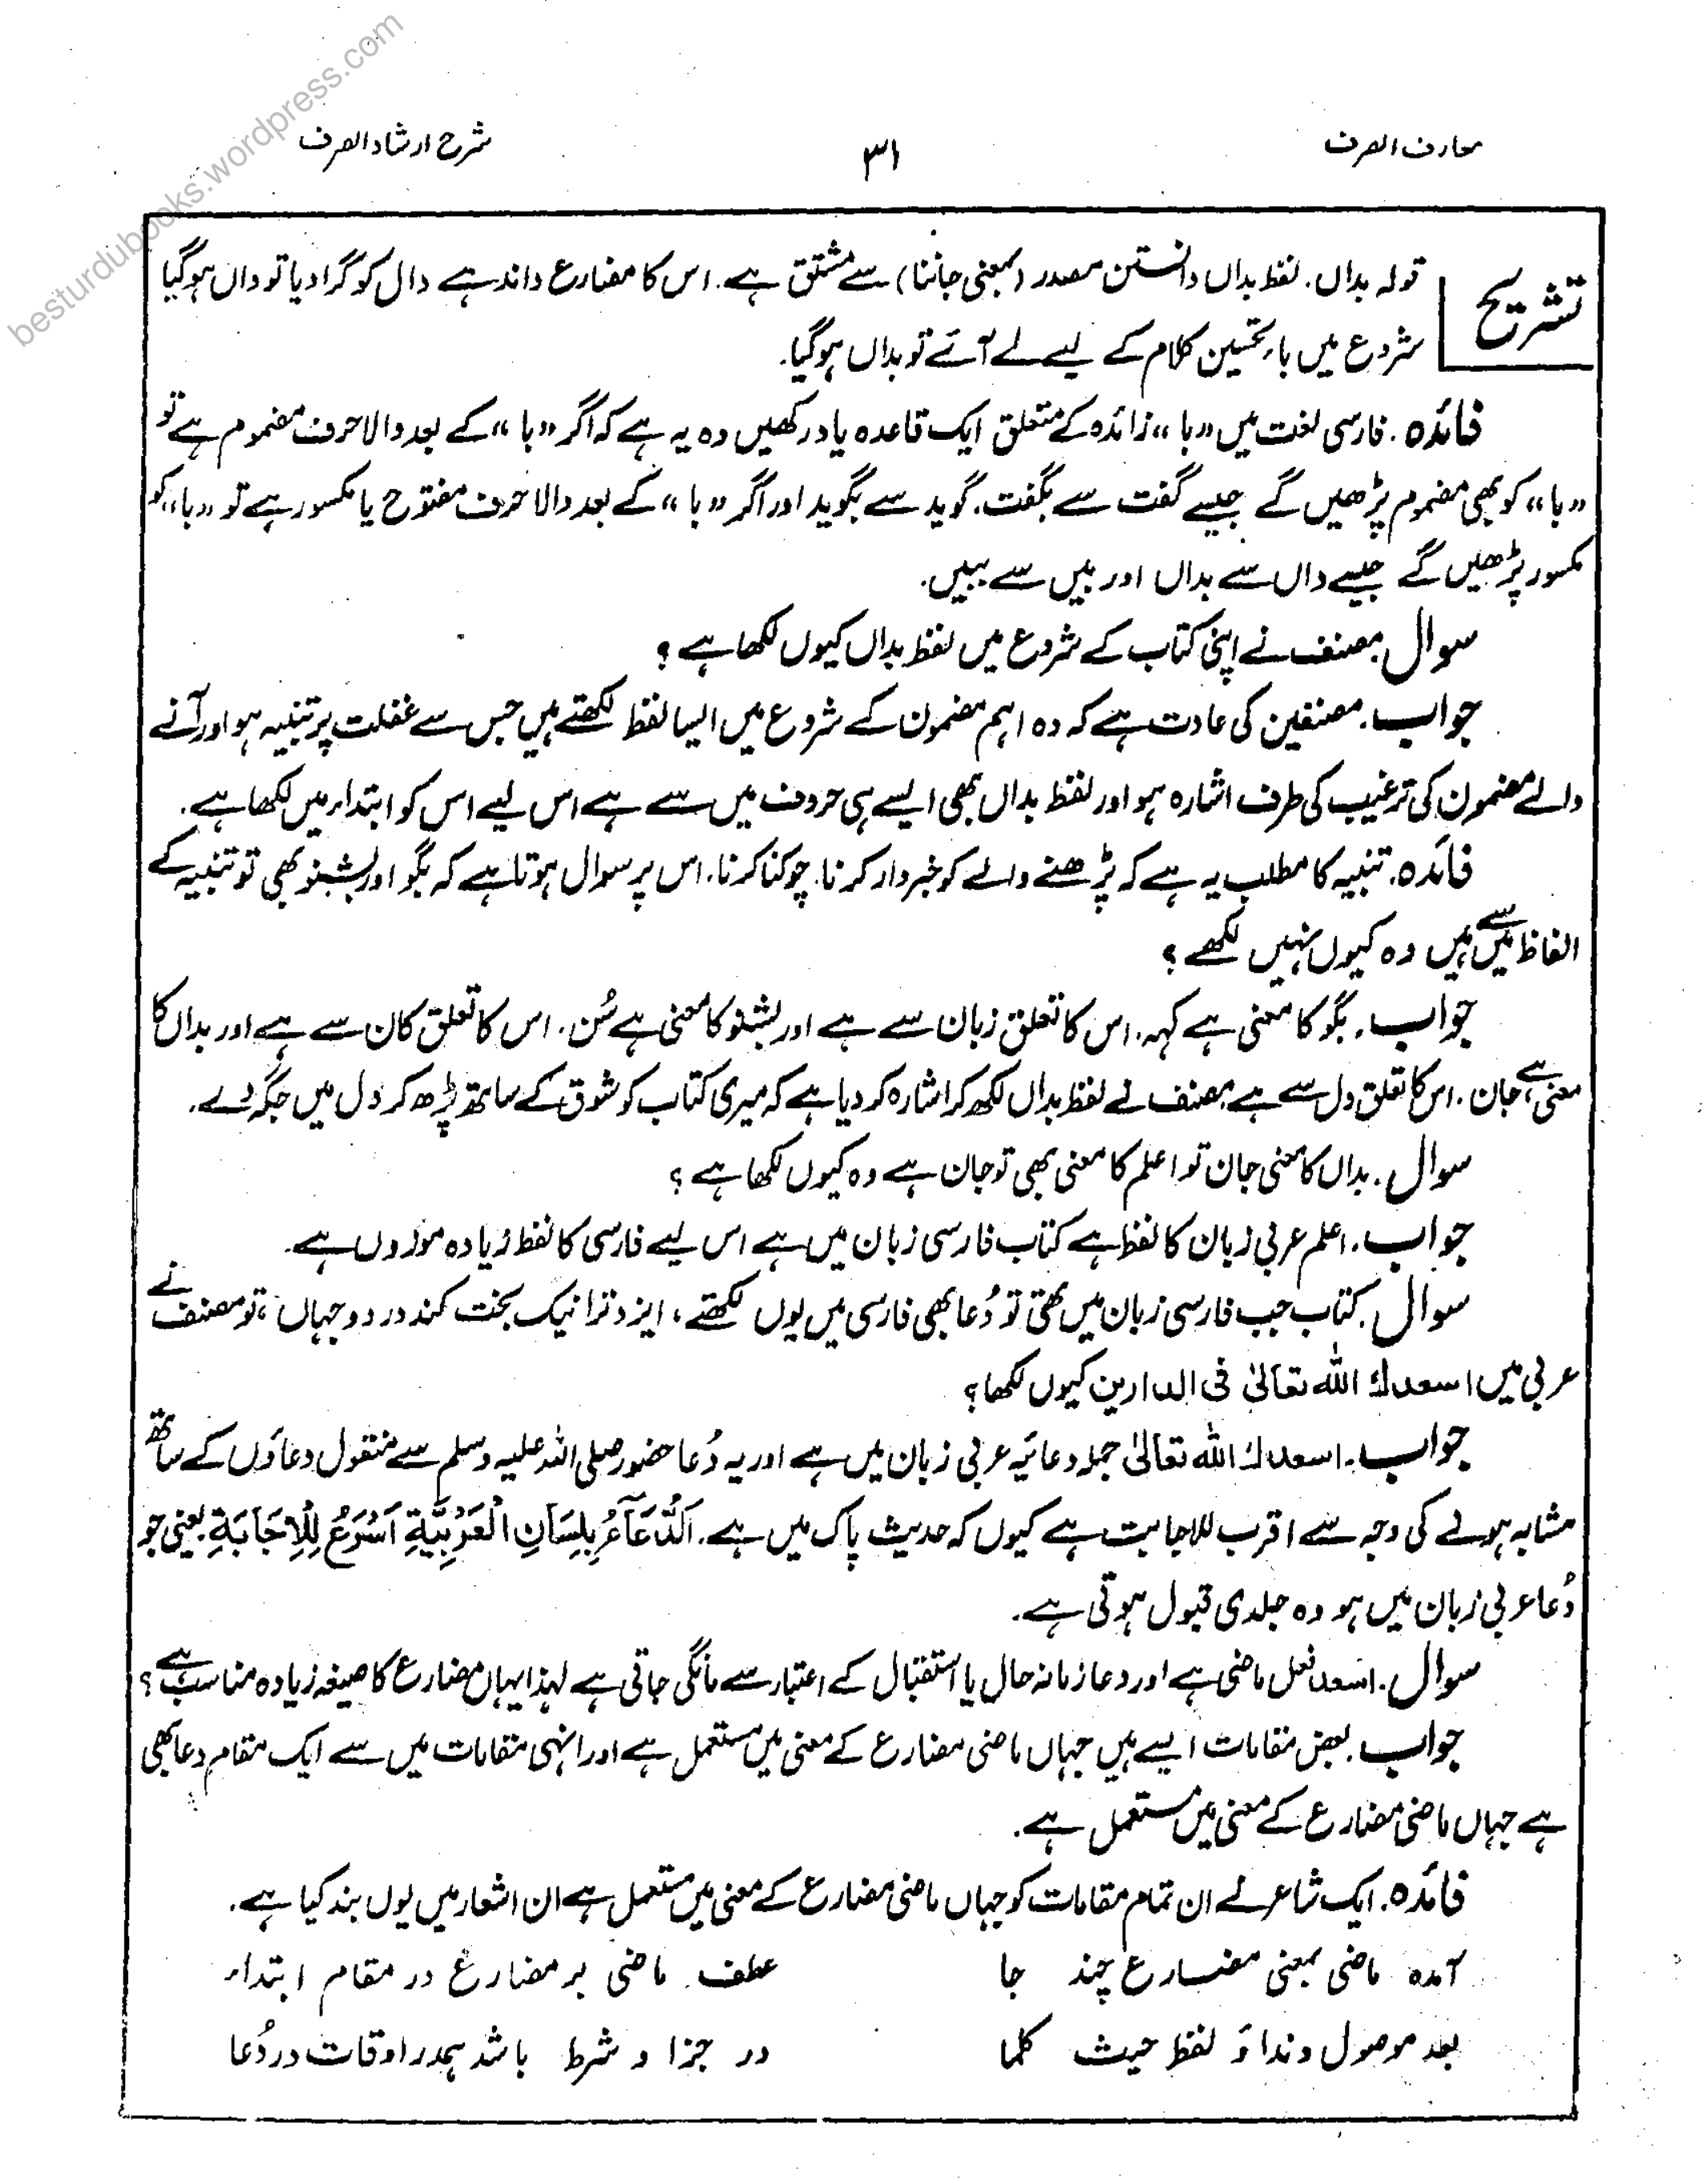 besturdubooks.wordpress.com
معارف الصرف
۳۱
شرح ارشاد الصرف
تشریح
قولہ بداں. لفظ بداں دانستن مصدر (بمعنی جاننا) سے مشتق ہے. اس کا مضارع داند ہے دال کو گرا دیا تو داں ہوگیا
شروع میں باء تحسین کلام کے لیے لے آئے تو بداں ہوگیا.
فائدہ. فارسی لغت میں "با" زائدہ کے متعلق ایک قاعدہ یاد رکھیں وہ یہ ہے کہ اگر "با" کے بعد والا حرف مضموم ہے تو
"با" کو بھی مضموم پڑھیں گے جیسے گفت سے بگفت. گوید سے بگوید اور اگر "با" کے بعد والا حرف مفتوح یا مکسور ہے تو "با" کو
مکسور پڑھیں گے جیسے داں سے بداں اور بیں سے ببیں.
سوال. مصنف نے اپنی کتاب کے شروع میں لفظ بداں کیوں لکھا ہے ؟
جواب. مصنفین کی عادت ہے کہ وہ اہم مضمون کے شروع میں ایسا لفظ لکھتے ہیں جس سے غفلت پر تنبیہ ہو اور آنے
والے مضمون کی ترغیب کی طرف اشارہ ہو اور لفظ بداں بھی ایسے ہی حروف میں سے ہے اس لیے اس کو ابتداء میں لکھا ہے.
فائدہ. تنبیہ کا مطلب یہ ہے کہ پڑھنے والے کو خبردار کرنا. چوکنا کرنا. اس پر سوال ہوتا ہے کہ بگو اور بشنو بھی تو تنبیہ کے
الفاظ میں سے ہیں وہ کیوں نہیں لکھے ؟
جواب. بگو کا معنی ہے کہہ. اس کا تعلق زبان سے ہے اور بشنو کا معنی ہے سُن. اس کا تعلق کان سے ہے اور بداں کا
معنی ہے جان. اس کا تعلق دل سے ہے مصنف نے لفظ بداں لکھ کر اشارہ کر دیا ہے کہ میری کتاب کو شوق کے ساتھ پڑھ کر دل میں جگہ دے.
سوال. بداں کا معنی جان تو اعلم کا معنی بھی تو جان ہے وہ کیوں لکھا ہے ؟
جواب. اعلم عربی زبان کا لفظ ہے کتاب فارسی زبان میں ہے اس لیے فارسی کا لفظ زیادہ موزوں ہے.
سوال. کتاب جب فارسی زبان میں تھی تو دُعا بھی فارسی میں یوں لکھتے، ایزد ترا نیک بخت کند در دو جہاں، تو مصنف نے
عربی میں اسعدك الله تعالیٰ فی الدارین کیوں لکھا؟
جواب. اسعدك الله تعالیٰ جملہ دعائیہ عربی زبان میں ہے اور یہ دُعا حضور صلی اللہ علیہ وسلم سے منقول دعاؤں کے ساتھ
مشابہ ہونے کی وجہ سے اقرب للاجابت ہے کیوں کہ حدیث پاک میں ہے. اَلدُّعَآءُ بِلِسَانِ الْعَرَبِیَّةِ اَسْرَعُ لِلْاِجَابَةِ یعنی جو
دُعا عربی زبان میں ہو وہ جلدی قبول ہوتی ہے.
سوال. اسعد فعل ماضی ہے اور دعا زمانہ حال یا استقبال کے اعتبار سے مانگی جاتی ہے لہذا یہاں مضارع کا صیغہ زیادہ مناسب ہے ؟
جواب. بعض مقامات ایسے ہیں جہاں ماضی مضارع کے معنی میں مستعمل ہے اور انہی مقامات میں سے ایک مقام دعا بھی
ہے جہاں ماضی مضارع کے معنی میں مستعمل ہے.
فائدہ. ایک شاعر نے ان تمام مقامات کو جہاں ماضی مضارع کے معنی میں مستعمل ہے ان اشعار میں یوں بند کیا ہے.
آمدہ ماضی بمعنی مضارع چند جا عطف ماضی بر مضارع در مقام ابتداء
بعد موصول و نداؤ لفظ حیث کلما در جزا و شرط باشد ہمدر اوقات در دُعا